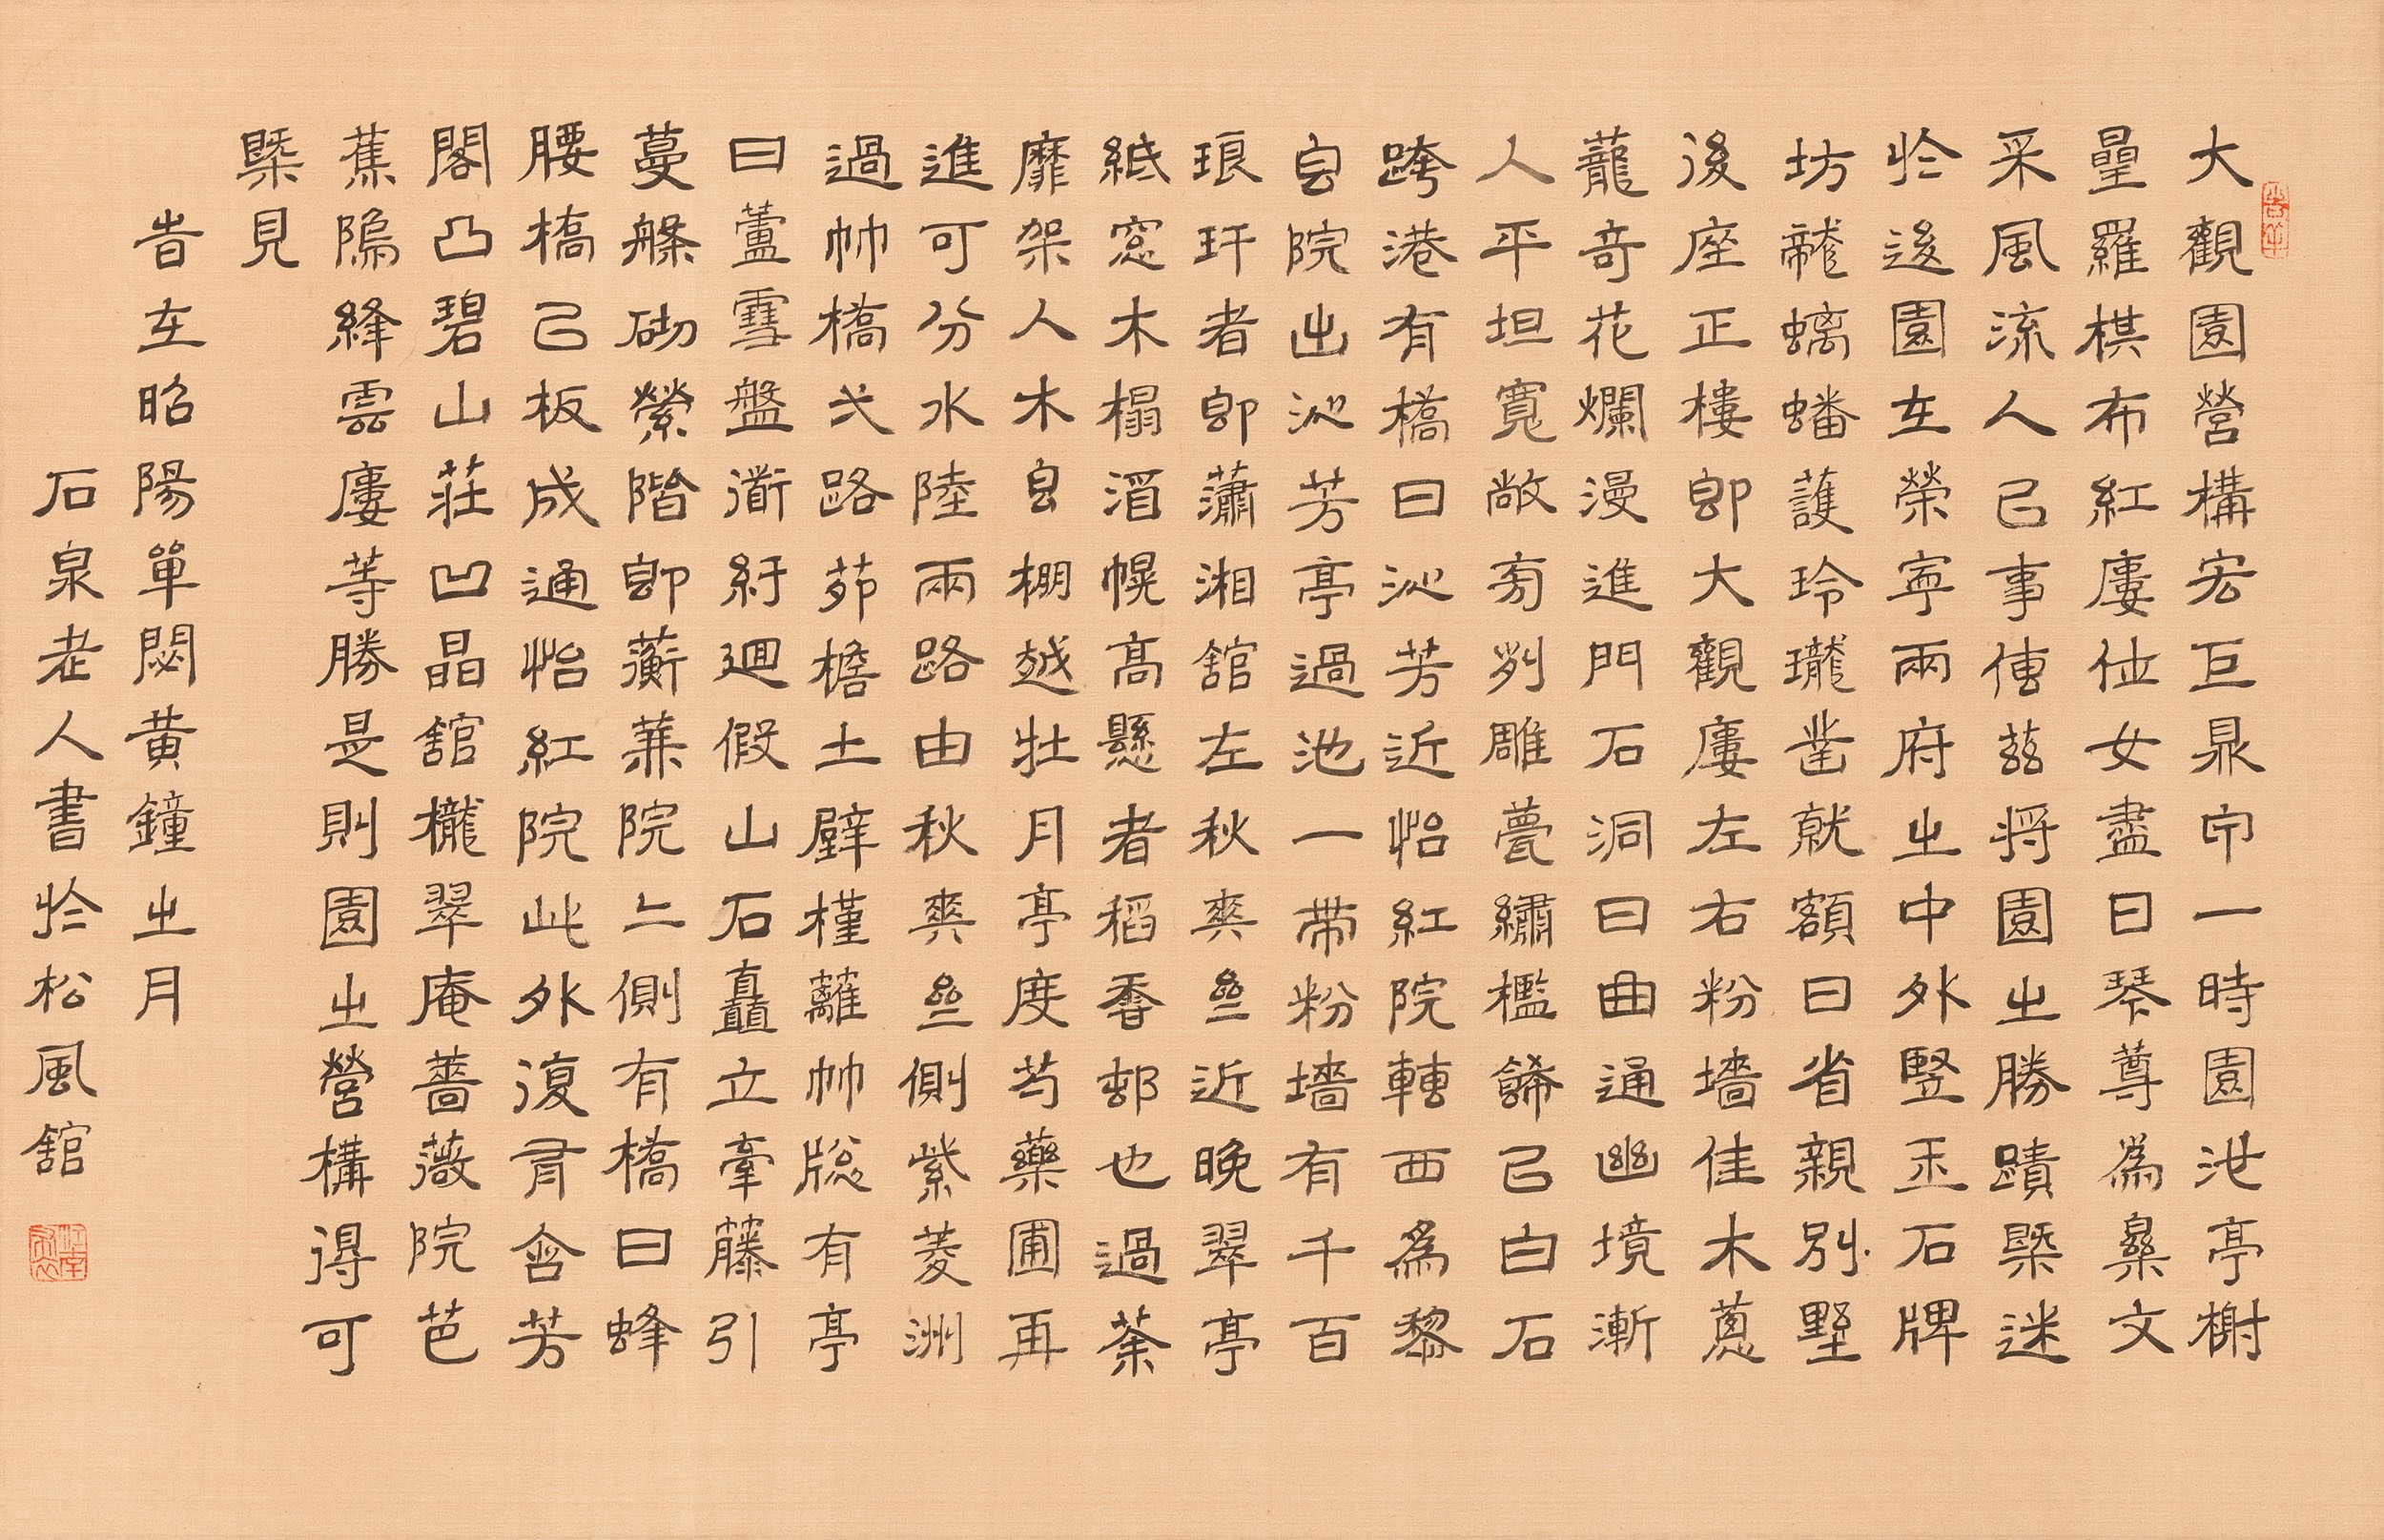 大觀園營構宏巨鼎甲一時園池亭榭
壘羅棋布紅廔位女盡日琴尊為彝文
采風流人已事傳茲將園之勝蹟槩述
於後園在榮寧兩府之中外豎玉石牌
坊龍螭蟠護玲瓏鑿就額曰省親別墅
後座正樓即大觀廔左右粉墻佳木蔥
蘢奇花爛漫進門石洞曰曲通幽境漸
人平坦寬敞旁列雕甍繡檻飾已白石
跨港有橋曰沁芳近怡紅院轉西為黎
皀院出沁芳亭過池一帶粉墻有千百
琅玕者即瀟湘館左秋爽叅近晚翠亭
紙窓木榻酒幌高懸者稻香邨也過荼
蘼架人木皀棚越牡丹亭度芍藥圃再
進可分水陸兩路由秋爽叅側紫菱洲
過竹橋弋路茆檐土壁槿蘺竹牕有亭
曰蘆雪盤道紆迴假山石矗立牽藤引
蔓縧砌縈階即蘅蕪院亠側有橋曰蜂
腰橋已板成通怡紅院此外復有含芳
閣凸碧山莊凹晶館櫳翠庵薔薇院芭
蕉隖絳雲廔等勝是則園之營構得可
槩見
旹在昭陽單閼黃鐘之月
石泉老人書於松風館